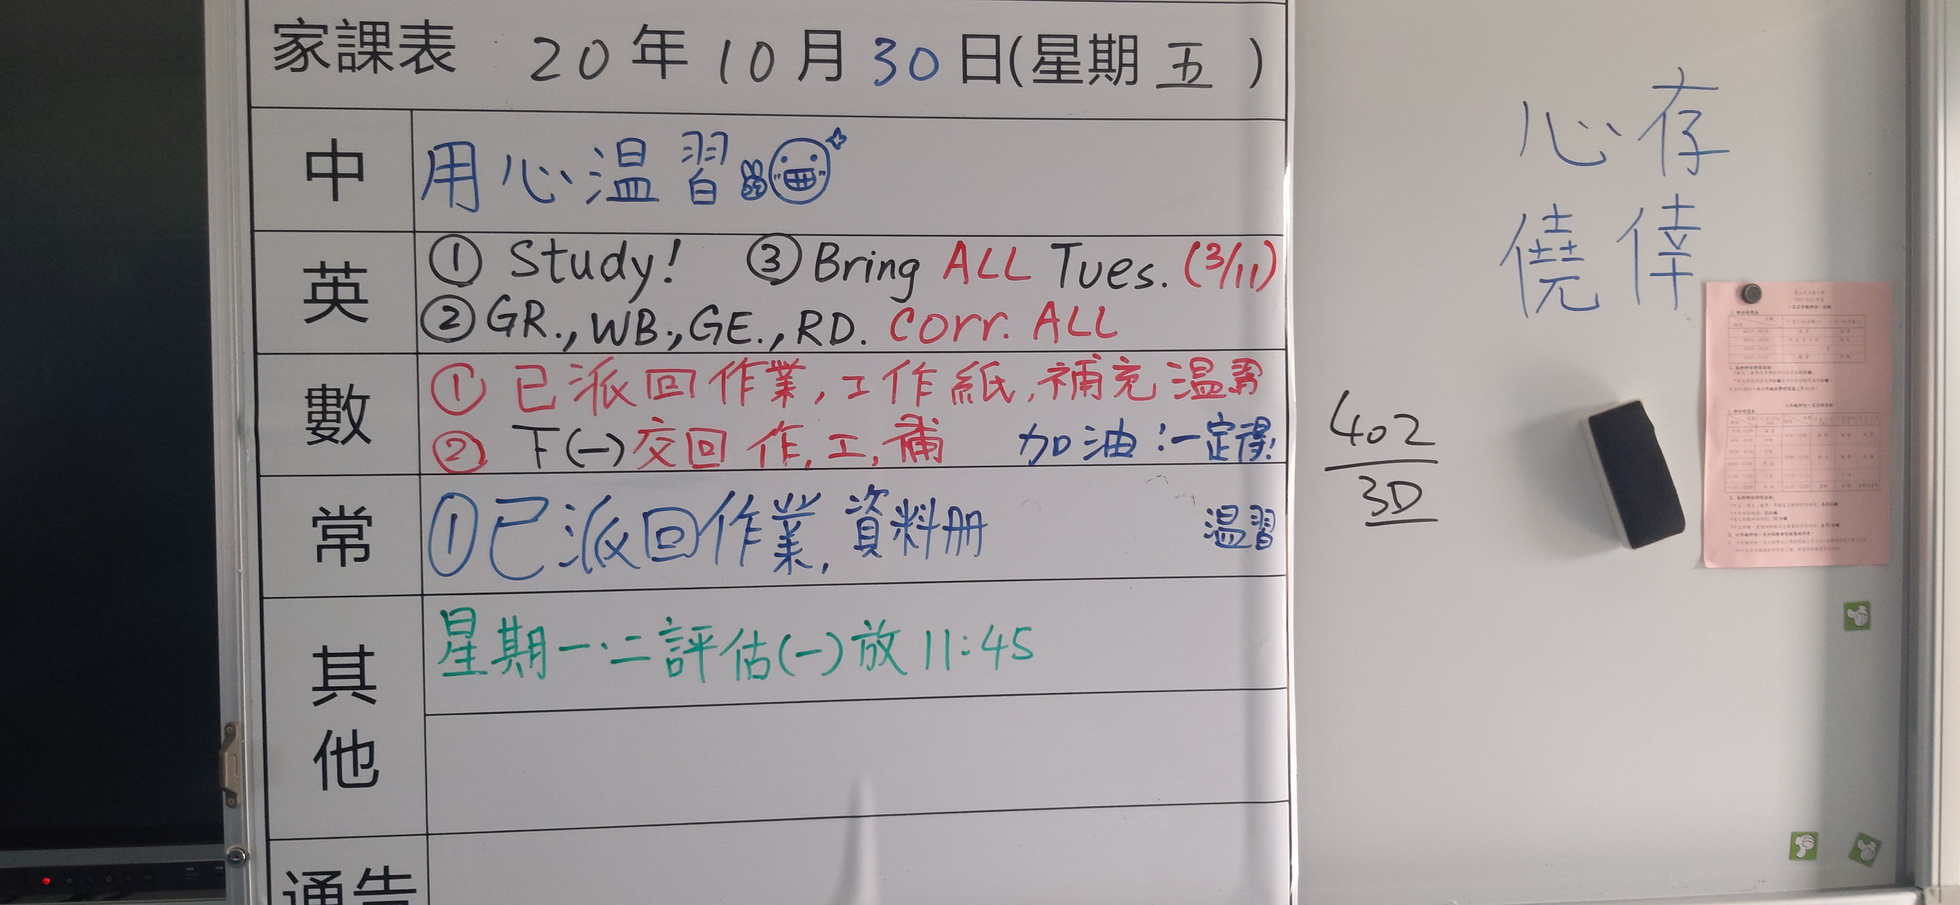 家課表 20年10月30日(星期五)
中 用心温習
英 ① Study! ③ Bring ALL Tues. (3/11)
② GR., WB., GE., RD. Corr. ALL
數 ① 已派回作業,工作紙,補充温習
② 下(一)交回作,工,補 加油!一定得!
常 ①已派回作業,資料册 温習
其他 星期一·二評估(一)放11:45
通告
心存
僥倖
402
3D